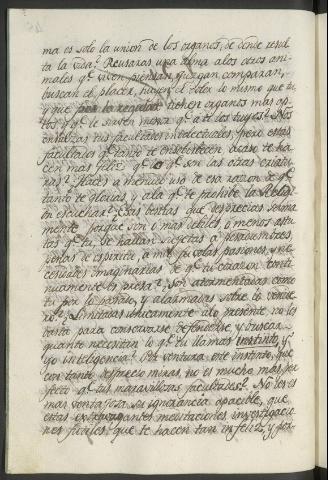 ma es solo la union de los organos, de donde resul
ta la vida? Reusaras una alma a los otros ani
males qe. viven, piensan, juzgan, comparan,
buscan el placer, huyen el dolor lo mismo que tu,
y que por lo regular tienen organos mas ap
tos y qe. le sirven menor qe. a ti los tuyos? Nos
ensalzas tus facultades intelectuales; pero estas
facultades qe. tanto te ensoberbecen acaso te ha
cen mas feliz qe. lo qe. son las otras criatu
ras? Haces a menudo uso de esa razon de qe.
tanto te glorias, y a la qe. te prohibe la Religi
on escuchar? Esas bestias que desprecias
porque son o mas debiles, o menos astu
tas qe. tu, se hallan sugetas a pesadumbres,
penas de espiritu, a mil frivolas pasiones, y ne
cesidades imaginarias de qe. tu corazon conti
nuamente es presa? Son atormentadas como
tu por lo pasado, y alarmadas sobre lo venide
ro? Limitadas unicamente a lo presente no les
basta para conservarse, defenderse, y buscar
quanto necesitan lo qe. tu llamas instinto, y
yo inteligencia? Por ventura este instinto, que
con tanto desprecio miras, no es mucho mas per
fecto qe. tus maravillosas facultades? No les es
mas ventajosa su ignorancia apacible, que
estas extravagantes meditaciones, investigacio
nes futiles que te hacen tan infeliz, y por